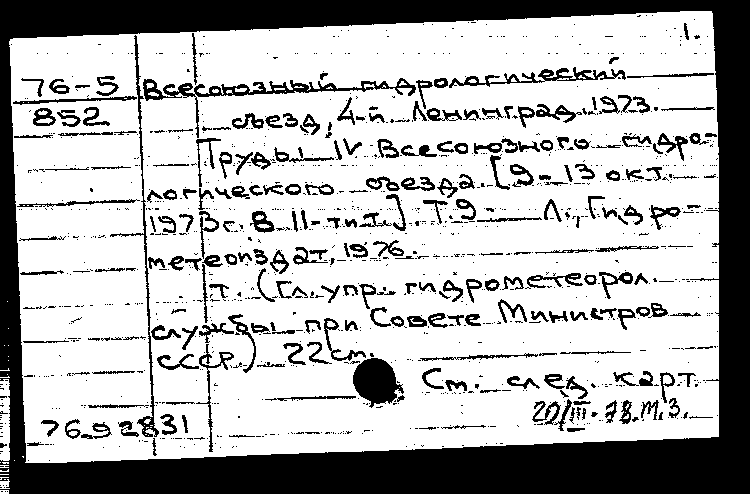 1.
76-5 Всесоюзный гидрологический
852 съезд, 4-й. Ленинград. 1973.
Труды IV Всесоюзного гидро-
логического съезда. [9-13 окт.
1973г. В 11-ти т.]. Т.9- Л., Гидро-
метеоиздат, 1976.
т. (Гл. упр. гидрометеорол.
службы при Совете Министров
СССР.) 22 см.
См. след. карт.
76-92831 20/III-78.М.З.